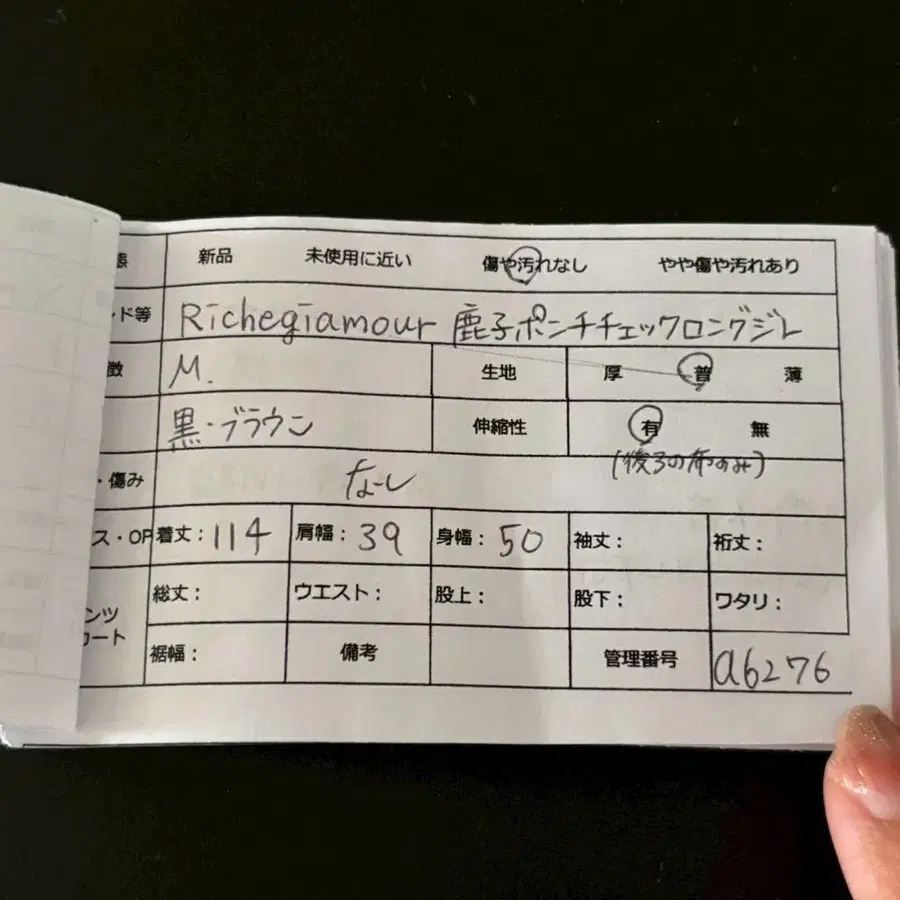 態 新品 未使用に近い 傷や汚れなし やや傷や汚れあり
ド等 Richegiamour 鹿子ポンチチェックロングジレ
徴 M. 生地 厚 普 薄
黒・ブラウン 伸縮性 有 無
(後ろの布のみ)
・傷み なし
ス・OP 着丈：114 肩幅：39 身幅：50 袖丈： 裄丈：
ンツ 総丈： ウエスト： 股上： 股下： ワタリ：
カート 裾幅： 備考 管理番号 a6276